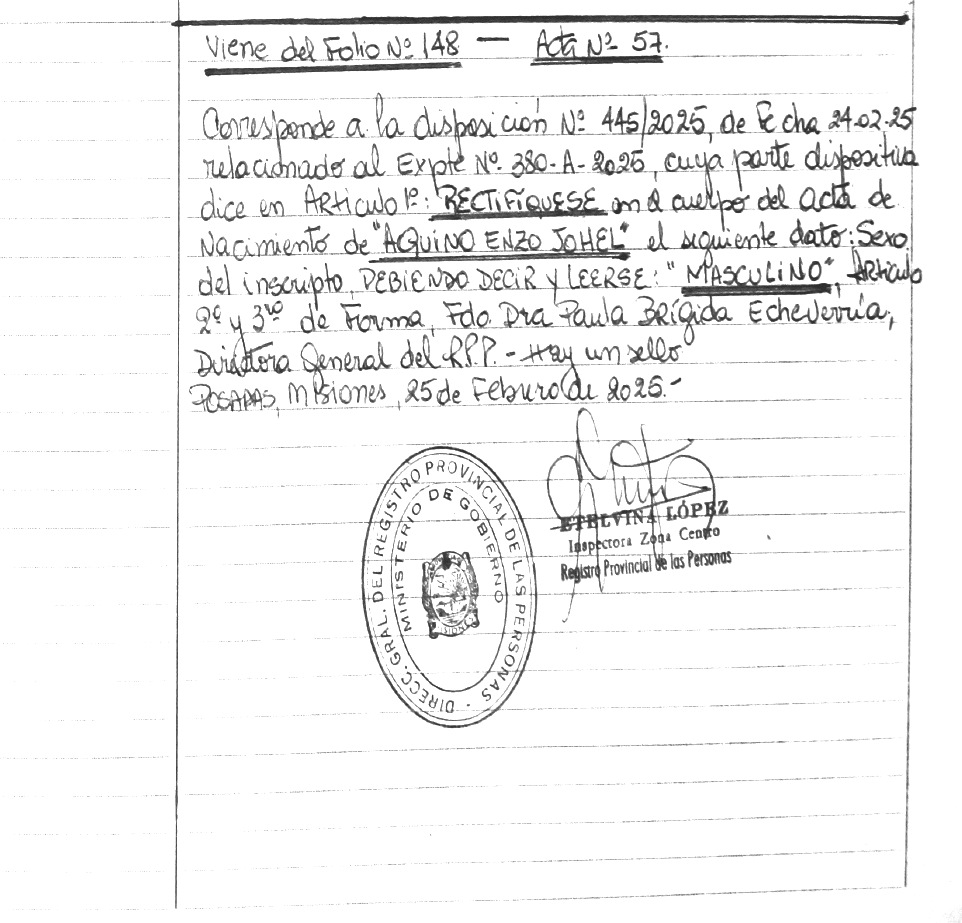 Viene del Folio Nº 148 — Acta Nº 57.
Corresponde a la disposición Nº 445/2025, de Fecha 24-02-25
relacionado al Expte Nº. 380-A-2025, cuya parte dispositiva
dice en ARticulo 1º: RECTIFÍQUESE en el cuerpo del acta de
Nacimiento de "AQUINO ENZO JOHEL" el siguiente dato: Sexo
del inscripto, DEBIENDO DECIR Y LEERSE: "MASCULINO", ARticulo
2º y 3ro de Forma, Fdo. Dra Paula BRígida Echeverría,
Directora General del R.P.P. - Hay un sello
POSADAS, Misiones, 25 de Feburo de 2025.-
DIRECC. GRAL. DEL REGISTRO PROVINCIAL DE LAS PERSONAS -
MINISTERIO DE GOBIERNO
MISIONES
ETELVINA LÓPEZ
Inspectora Zona Centro
Registro Provincial de las Personas